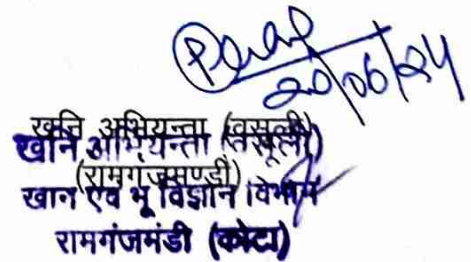 20/06/24
खनि अभियन्ता (वसूली)
खनि अभियन्ता (वसूली)
(रामगंजमण्डी)
खान एवं भू विज्ञान विभाग
रामगंजमंडी (कोटा)